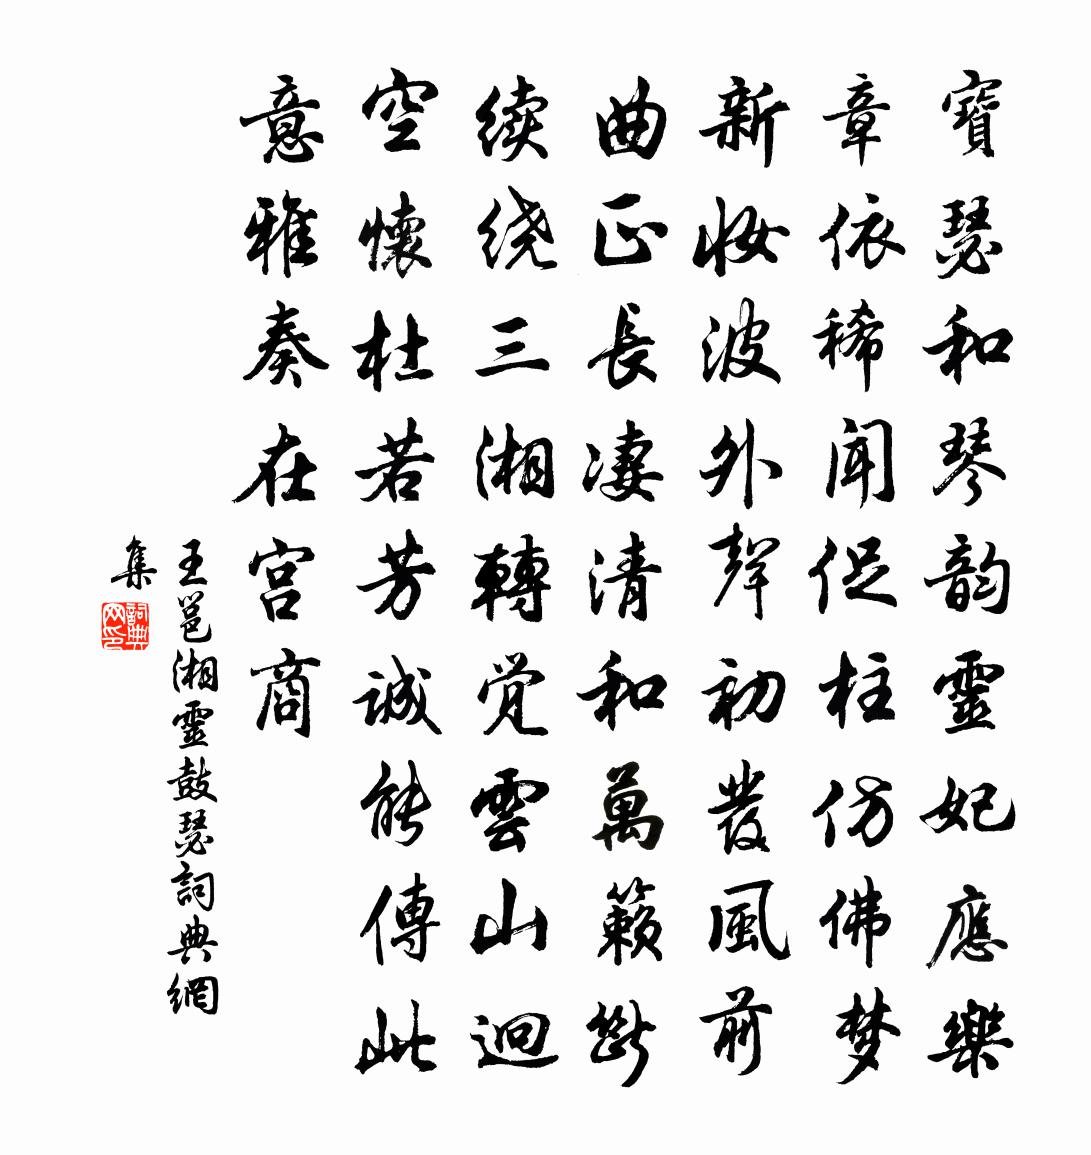 寶瑟和琴韵靈妃應樂
章依稀聞促柱仿佛梦
新妝波外聲初發風前
曲正長凄清和萬籟斷
续绕三湘轉覚雲山迥
空懷杜若芳誠能傳此
意雅奏在宫商
王邕湘靈鼓瑟詞典網
集
詞典
网印